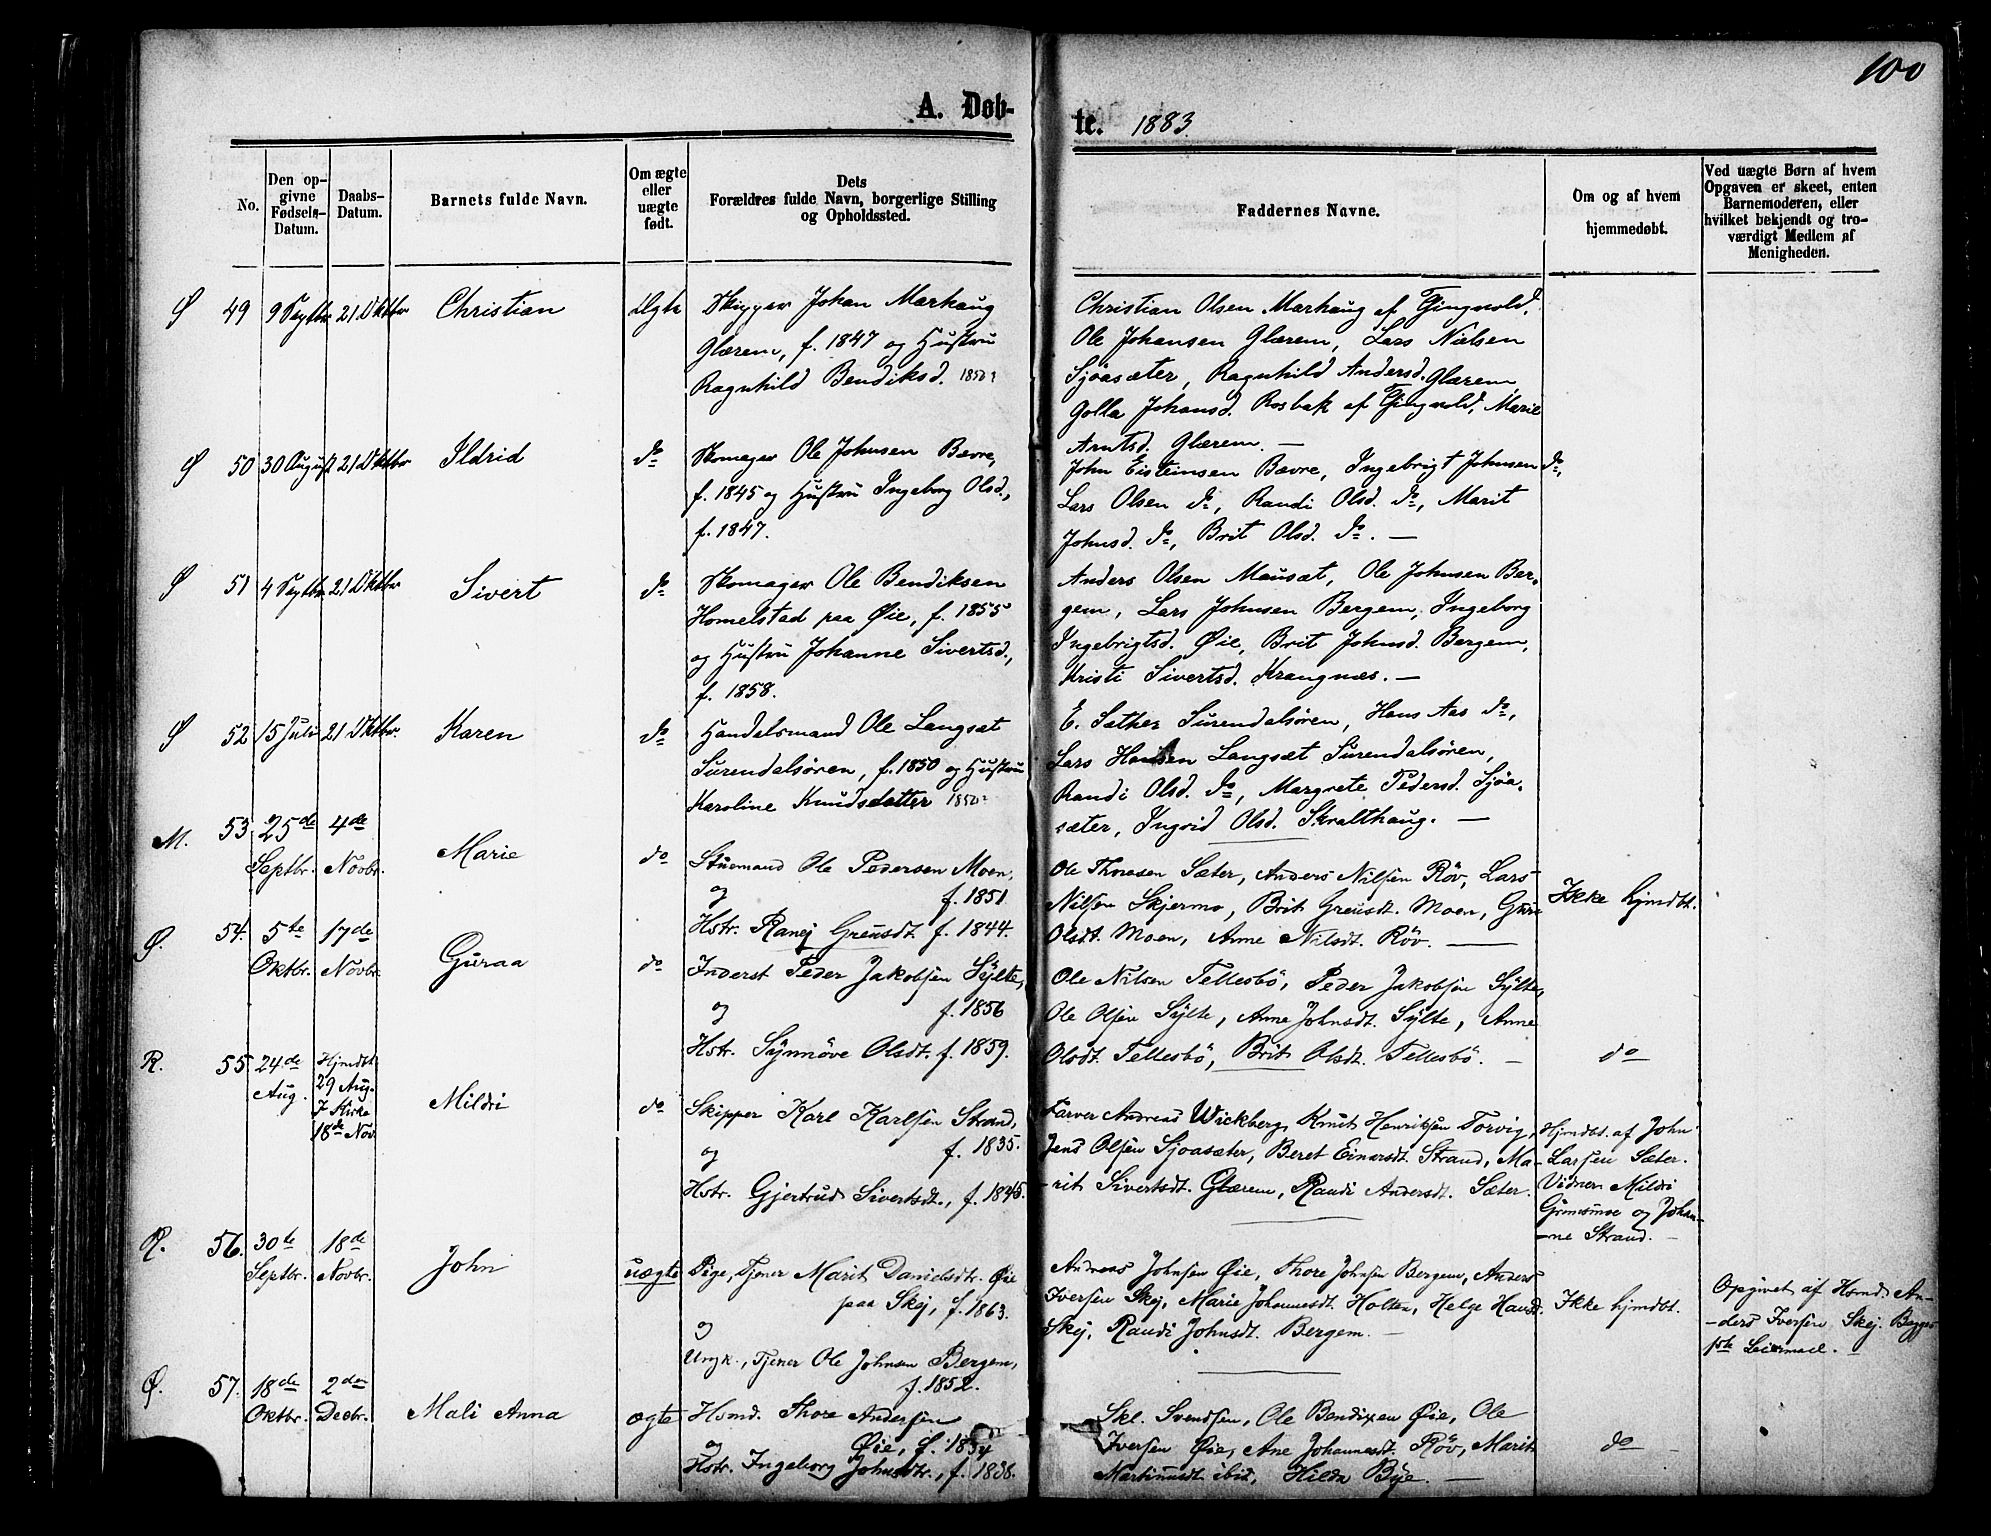 100
A. Døb-
te. 1883.
No.
Den op-
givne
Fødsels-
Datum.
Daabs-
Datum.
Barnets fulde Navn.
Om ægte
eller
uægte
født.
Dets
Forældres fulde Navn, borgerlige Stilling
og Opholdssted.
Faddernes Navne.
Om og af hvem
hjemmedøbt.
Ved uægte Børn af hvem
Opgaven er skeet, enten
Barnemoderen, eller
hvilket bekjendt og tro-
værdigt Medlem af
Menigheden.
Ø 49 9 Septbr 21 Oktbr Christian Ægte
Skipper Johan Markaug
Glærem, f. 1847 og Hustru
Ragnhild Bendiksd. 1850?
Christian Olsen Markaug af Tingvold,
Ole Johansen Glærem, Lars Nielsen
Sjøasæter, Ragnhild Andersd. Glærem
Golla Johansd. Rosbak af Tingvold, Marie
Arntsd. Glærem. —
Ø 50 30 August 21 Oktbr Ildrid do
Skomager Ole Johnsen Bævre,
f. 1845 og Hustru Ingeborg Olsd.,
f. 1847.
John Eisteinsen Bævre, Ingebrigt Johnsen do,
Lars Olsen do, Randi Olsd. do, Marit
Johnsd. do, Brit Olsd. do. —
Ø 51 4 Septbr 21 Oktbr Sivert do
Skomager Ole Bendiksen
Homelstad paa Øie, f. 1855
og Hustru Johanne Sivertsd.,
f. 1858.
Anders Olsen Mausæt, Ole Johnsen Ber-
gem, Lars Johnsen Bergem, Ingeborg
Ingebrigtsd. Øie, Brit Johnsd. Bergem,
Kristi Sivertsd. Krangnæs. —
Ø 52 15 Juli 21 Oktbr. Karen do
Handelsmand Ole Langsæt
Surendalsøren, f. 1850 og Hustru
Karoline Knudsdatter 1850?
E. Sæther Surendalsøren, Hans Aas do,
Lars Hansen Langsæt Surendalsøren,
Randi Olsd. do, Margrete Pedersd. Sjøa-
sæter, Ingrid Olsd. Skralthaug. —
M. 53 25de 4de
Septbr. Novbr. Marie do
Stuemand Ole Pedersen Moen,
og f. 1851
Hstr. Ranej Greusdt. f. 1844.
Ole Thoresen Sæter, Anders Nilsen Røv, Lars
Nilsen Skjermo, Brit Greusdt. Moen, Guri
Olsdt. Moen, Anne Nilsdt. Røv. —
Ikke hjmdbt.
Ø. 54. 5te 17de
Oktbr. Novbr. Guraa do
Inderst Peder Jakobsen Sylte,
og f. 1856
Hstr. Synnöve Olsdt. f. 1859.
Ole Nilsen Tellesbö, Peder Jakobsen Sylte,
Ole Olsen Sylte, Anne Johnsdt. Sylte, Anne
Olsdt. Tellesbö, Brit Olsdt. Tellesbö. —
do
R. 55 24de Hjmdbt.
Aug. 29 Aug.
I Kirke
18de Nov. Mildri do
Skipper Karl Karlsen Strand,
og f. 1835.
Hstr. Gjertrud Sivertsdt., f. 1845.
Farver Andreas Wickberg, Knut Henriksen Torvig,
Jens Olsen Sjøasæter, Beret Einarsdt. Strand, Ma-
-rit Sivertsdt. Glærem, Randi Andersdt. Sæter.
Hjmdbt. af John
Larsen Sæter.
Vidner Mildri
Grimsmoe og Johan-
-ne Strand.
R. 56. 30te 18de
Septbr. Novbr. John uægte
Pige, Tjener Marit Danielsdtr. Øie
paa Skej, f. 1863.
og
Ungk., Tjener Ole Johnsen Bergem,
f. 1852.
Andreas Johnsen Øie, Thore Johnsen Bergem, Anders
Iversen Skej, Marie Johannesdt. Holten, Helge Hansd.
Skej, Randi Johnsdt. Bergem. —
Ikke hjmdbt.
Opgivet af Hsmd. An-
-ders Iversen Skej. Begges
1ste Leiermaal.
Ø. 57. 18de 2den
Oktbr. Decbr. Mali Anna ægte
Hsmd. Thore Andersen
og Øie, f. 1834
Hstr. Ingeborg Johnsdtr., f. 1838.
Skl. Svendsen, Ole Bendixen Øie, Ole
Iversen Øie, Ane Johannesdt. Røv, Marit
Martinusdt. ibid, Hilda Bye. —
do